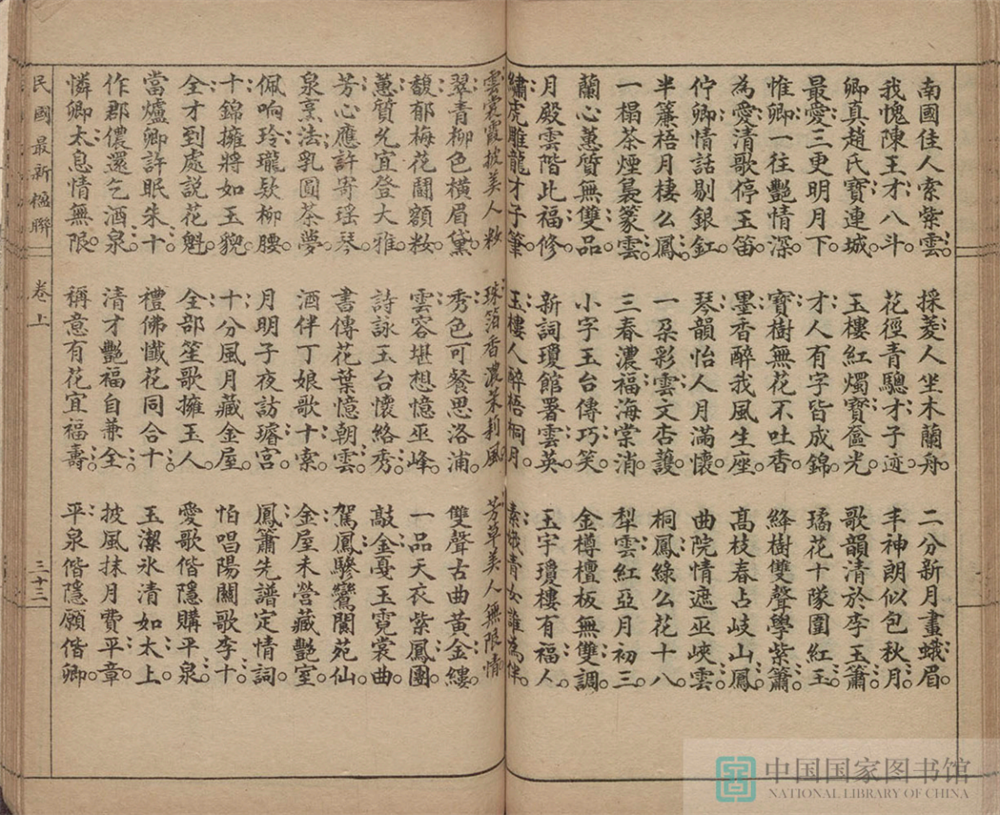 南國佳人索紫雲
我愧陳王才八斗
卿真趙氏寶連城
最愛三更明月下
惟卿一往艷情深
為愛清歌停玉笛
佇卿情話剔銀釭
半簾梧月棲么鳳
一榻茶煙裊篆雲
蘭心蕙質無雙品
月殿雲階此福修
繡虎雕龍才子筆
採菱人坐木蘭舟
花徑青驄才子迹
玉樓紅燭寶奩光
才人有字皆成錦
寶樹無花不吐香
墨香醉我風生座
琴韻怡人月滿懷
一朵彩雲文杏護
三春濃福海棠消
小字玉台傳巧笑
新詞瓊館署雲英
玉樓人醉梧桐月
二分新月畫蛾眉
丰神朗似包秋月
歌韻清於李玉簫
璚花十隊圍紅玉
絳樹雙聲學紫簫
高枝春占岐山鳳
曲院情遮巫峽雲
桐鳳綠么花十八
犁雲紅亞月初三
金樽檀板無雙調
玉宇瓊樓有福人
素娥青女誰為伴
雲裳霞披美人粧
翠青柳色橫眉黛
馥郁梅花鬪額粧
蕙質允宜登大雅
芳心應許寄瑶琴
泉烹法乳圓茶夢
佩响玲瓏欵柳腰
十錦擁將如玉貌
全才到處說花魁
當爐卿許眠朱十
作郡儂還乞酒泉
憐卿太息情無限
珠箔香濃茉莉風
秀色可餐思洛浦
雲容堪想憶巫峰
詩詠玉台懷絡秀
書傳花葉憶朝雲
酒伴丁娘歌十索
月明子夜訪璿宮
十分風月藏金屋
全部笙歌擁玉人
禮佛懺花同合十
清才艷福自兼全
稱意有花宜福壽
芳草美人無限情
雙聲古曲黃金縷
一品天衣紫鳳團
敲金戛玉霓裳曲
駕鳳驂鸞閬苑仙
金屋未營藏艷室
鳳簫先譜定情詞
怕唱陽關歌李十
愛歌偕隱購平泉
玉潔氷清如太上
披風抹月費平章
平泉偕隱願偕卿
民國最新楹聯
卷上
三十三
中国国家图书馆
NATIONAL LIBRARY OF CHINA